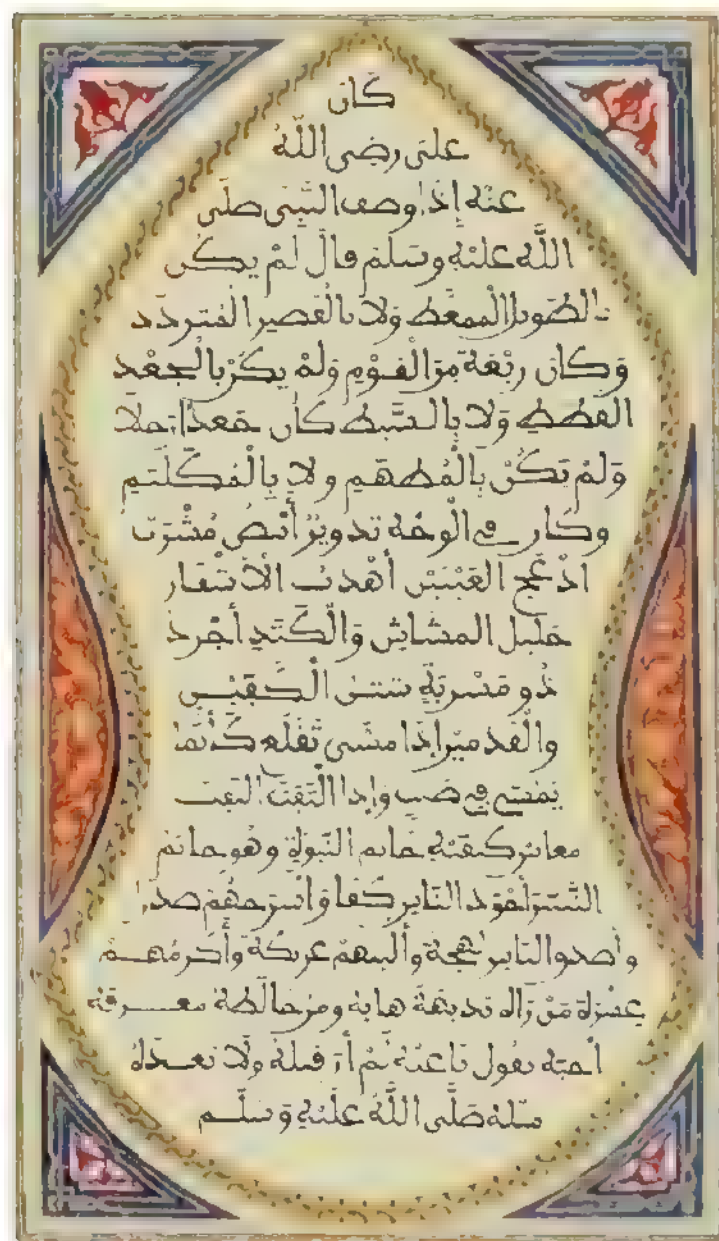 كان
على رضى الله
عنه إذا وصف النبى صلى
الله عليه وسلم قال لم يكن
بالطويل الممغط ولا بالقصير المتردد
وكان ربعة من القوم ولم يكن بالجعد
القطط ولا بالسبط كان جعدا رجلا
ولم يكن بالمطهم ولا بالمكلثم
وكان في الوجه تدوير أبيض مشرب
ادعج العينين أهدب الاشفار
جليل المشاش والكتد أجرد
ذو مسربة شثن الكفين
والقدمين إذا مشى تقلع كأنما
يمشي في صبب وإذا التفت التفت
معا بين كتفيه خاتم النبوة وهو خاتم
النبيين أجود الناس كفا واشرحهم صدرا
وأصدق الناس لهجة وألينهم عريكة وأكرمهم
عشرة من رآه بديهة هابه ومن خالطه معرفة
أحبه يقول ناعته لم أر قبله ولا بعده
مثله صلى الله عليه وسلم